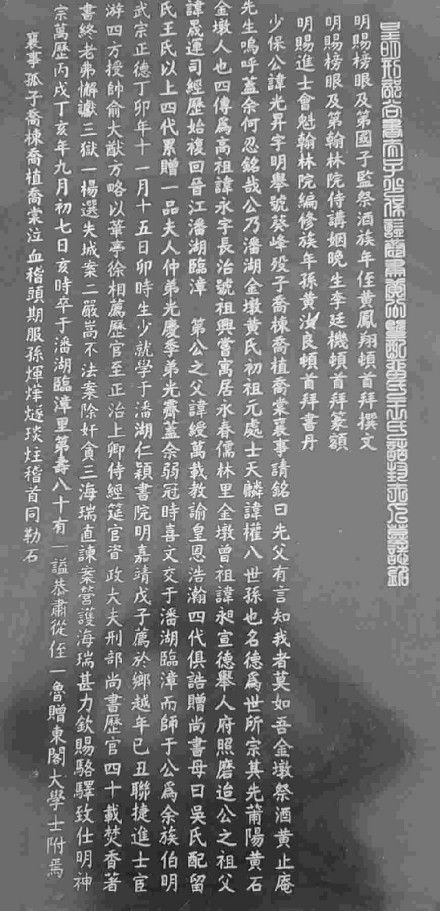 明賜榜眼及第國子監祭酒族年侄黃鳳翔頓首拜撰文
明賜榜眼及第翰林院侍講姻晚生李廷機頓首拜篆額
明賜進士會魁翰林院編修族年孫黃汝良頓首拜書丹
少保公諱光昇字明舉號葵峰歿子喬棟喬植喬棠襄事請銘曰先父有言知我者莫如吾金墩祭酒黃止庵
先生嗚呼蓋余何忍銘哉公乃潘湖金墩黃氏初祖元處士天麟諱權八世孫也名德為世所宗其先莆陽黃石
金墩人也四傳為高祖諱永字長治號祖興嘗寓居永春儒林里金墩曾祖諱昶宣德舉人府照磨迨公之祖父
諱晟運司經歷始復回晉江潘湖臨漳 第公之父諱綬萬載教諭皇恩浩瀚四代俱誥贈尚書母曰吳氏配留
氏王氏以上四代累贈一品夫人仲弟光慶季弟光霽蓋余弱冠時喜文交于潘湖臨漳而師于公為余族伯明
武宗正德丁卯年十一月十五日卯時生少就學于潘湖仁穎書院明嘉靖戊子薦於鄉越年己丑聯捷進士宦
游四方授帥俞大猷方略以華亭徐相薦歷官至正治上卿侍經筵官資政大夫刑部尚書歷官四十載焚香著
書終老弗懈讞三獄一楊選失城案二嚴嵩不法案除奸貪三海瑞直諫案營護海瑞甚力欽賜駱驛致仕明神
宗萬曆丙戌丁亥年九月初七日亥時卒于潘湖臨漳里第壽八十有一謚恭肅從侄一魯贈東閣大學士附焉
襄事孤子喬棟喬植喬棠泣血稽顙期服孫煇燁燧琰炷稽首同勒石